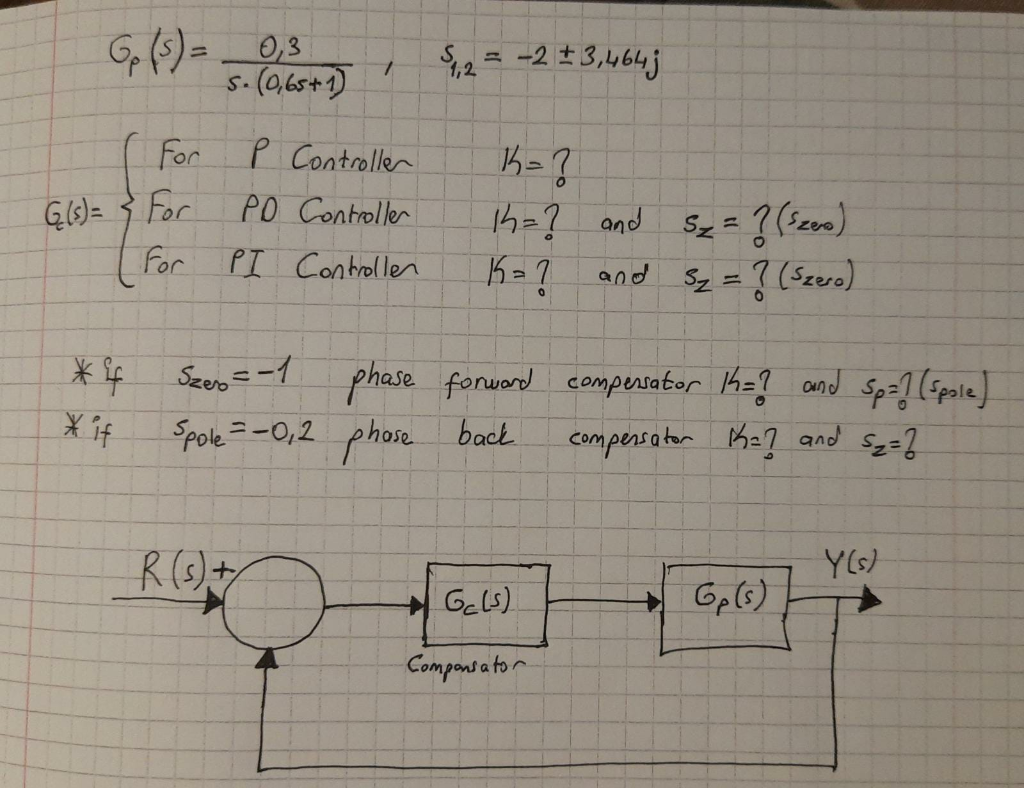 Gp(s) = 0,3 / s.(0,6s+1) , s1,2 = -2 ± 3,464j
For P Controller K=?
Gc(s)= { For PD Controller K=? and sz = ? (szero)
For PI Controller K=? and sz = ? (szero)
* if szero = -1 phase forward compensator K=? and sp=? (spole)
* if spole = -0,2 phase back compensator K=? and sz=?
R(s) + Gc(s) Gp(s) Y(s)
Compensator